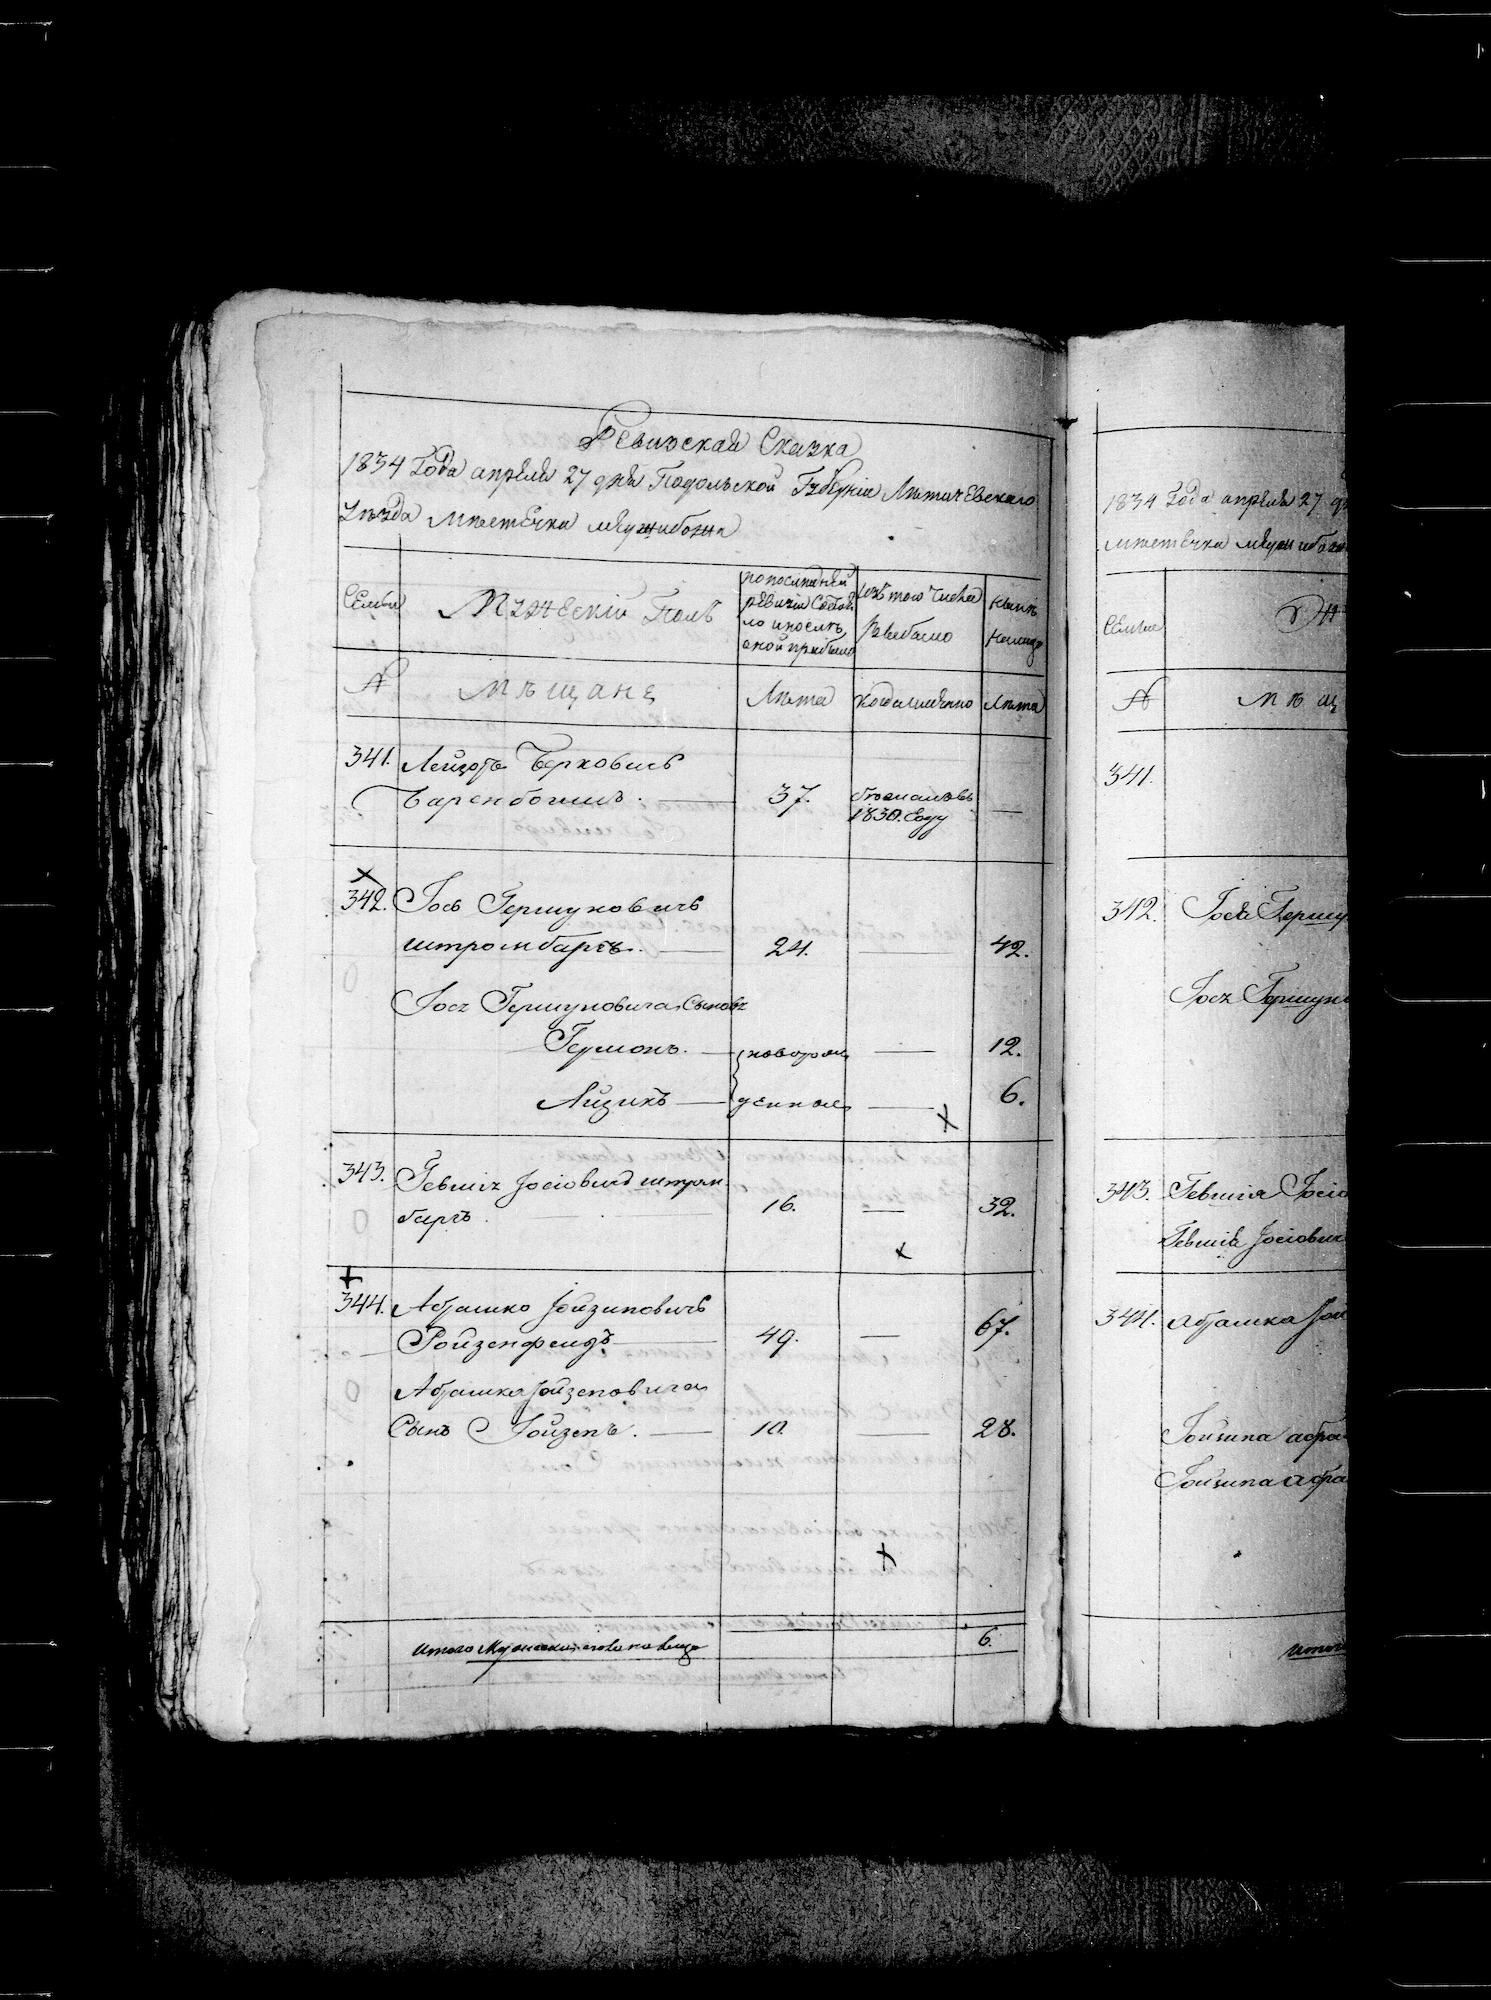 Ревизская Сказка
1834 Года апреля 27 дня Подольской Губернiи Летичевскаго
Уезда Местечка Межибожа
Семьи
Мужескiй Полъ
по последней
ревизiи состоя
ло и после
оной прибыло
Изъ того числа
выбыло
ныне
налицо
№
Мещане
Лета
Когда имянно
Лета
341. Лейзоръ Берковичъ
Баренбоимъ. 37. 1830. году —
342. Iось Гершуновичъ
Штромбаргъ. 24. — 42.
Iося Гершуновича Сыновья
Гершонъ. — новорож — 12.
Айзикъ — денные — 6.
343. Гевшiя Iосiовичъ Штром
баргъ. 16. — 32.
344. Абрашко Iойзиповичъ
Ройзенфендъ 49. — 67.
Абрашка Iойзеповича
Сынъ Iойзепъ. — 10. — 28.
Итого Мужеска пола на лицо 6.
1834 Года апреля 27 д
местечка Межибо
Семьи
№ Мещ
341.
342. Iося Гершу
Iося Гершун
343. Гевшiя Iосiо
Гевшiя Iосiович
344. Абрашка Iой
Iойзипа абра
Iойзипа абра
Итого